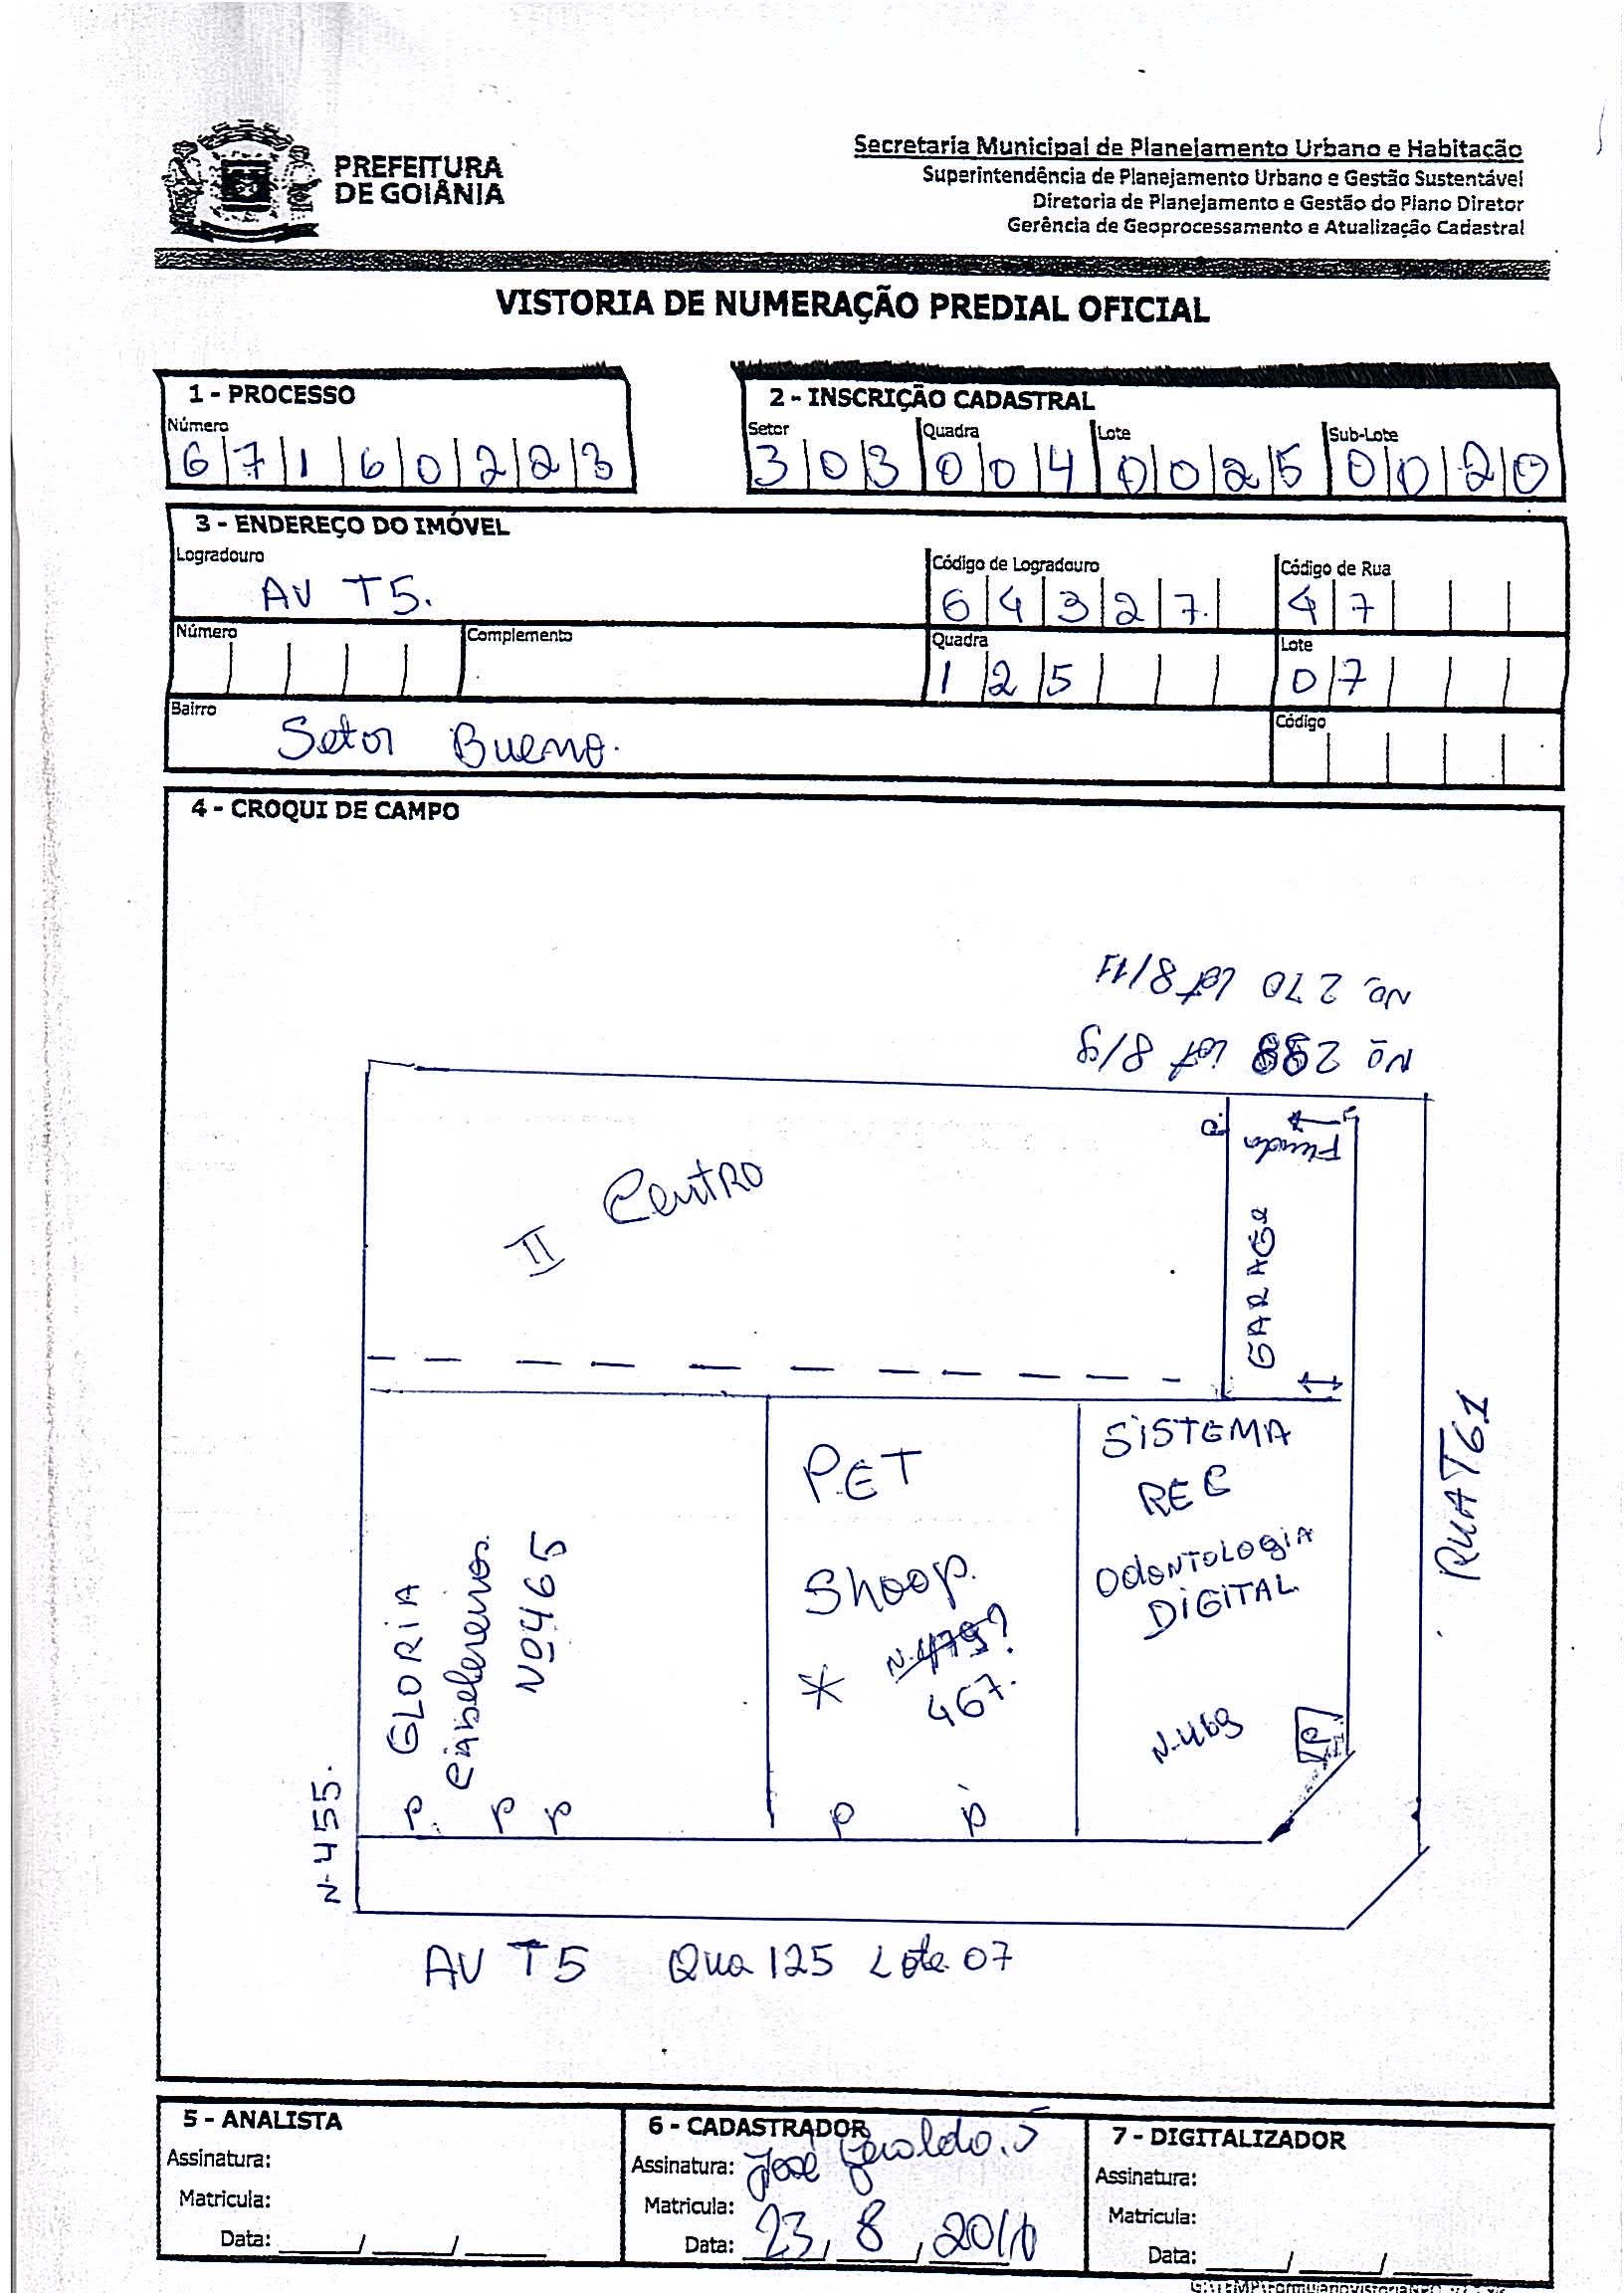 PREFEITURA
DE GOIÂNIA
Secretaria Municipal de Planejamento Urbano e Habitação
Superintendência de Planejamento Urbano e Gestão Sustentável
Diretoria de Planejamento e Gestão do Plano Diretor
Gerência de Geoprocessamento e Atualização Cadastral
VISTORIA DE NUMERAÇÃO PREDIAL OFICIAL
1 - PROCESSO
Número
6 7 1 6 0 2 2 3
2 - INSCRIÇÃO CADASTRAL
Setor Quadra Lote Sub-Lote
3 0 3 0 0 4 0 0 2 5 0 0 2 0
3 - ENDEREÇO DO IMÓVEL
Logradouro
AV T5.
Código de Logradouro
6 4 3 2 7.
Código de Rua
4 7
Número
Complemento
Quadra
1 2 5
Lote
0 7
Bairro
Setor Bueno.
Código
4 - CROQUI DE CAMPO
Nº 270 lot 8/11
Nº 288 lot 8/9
II Centro
GARAGE
RUA T61
GLORIA
Cabelereiros.
Nº 465
PET
Shoop.
N.479?
* 467.
SISTEMA
REC
ODONTOLOGIA
DIGITAL
N-469
P
P. P P
P P
N-455.
AV T5 Qua 125 Lote 07
5 - ANALISTA
Assinatura:
Matricula:
Data: / /
6 - CADASTRADOR
Assinatura: José Geraldo. S
Matricula:
Data: 23/ 8 /
7 - DIGITALIZADOR
Assinatura:
Matricula:
Data: / /